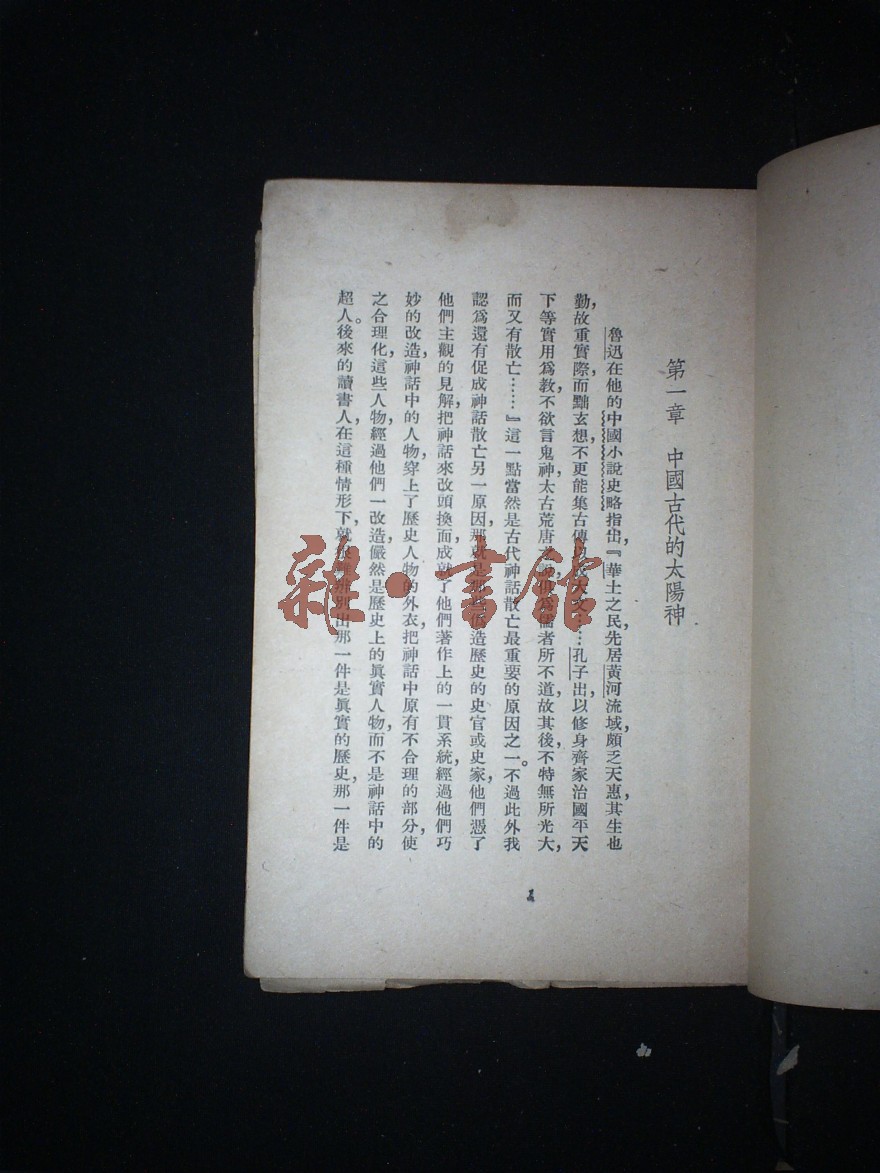 第一章 中國古代的太陽神
魯迅在他的中國小說史略指出『華土之民先居黃河流域，頗乏天惠，其生也
勤，故重實際，而黜玄想，不更能集古傳以成大文……孔子出，以修身齊家治國平天
下等實用爲教，不欲言鬼神，太古荒唐之說，俱爲儒者所不道，故其後不特無所光大，
而又有散亡……』這一點當然是古代神話散亡最重要的原因之一。不過此外我
認爲還有促成神話散亡另一原因，那就是那些僞造歷史的史官或史家，他們憑了
他們主觀的見解，把神話來改頭換面，成就了他們著作上的一貫系統，經過他們巧
妙的改造，神話中的人物，穿上了歷史人物的外衣，把神話中原有不合理的部分，使
之合理化，這些人物，經過他們一改造，儼然是歷史上的眞實人物，而不是神話中的
超人。後來的讀書人，在這種情形下，就很難辨別出那一件是眞實的歷史，那一件是
1
雜·書館